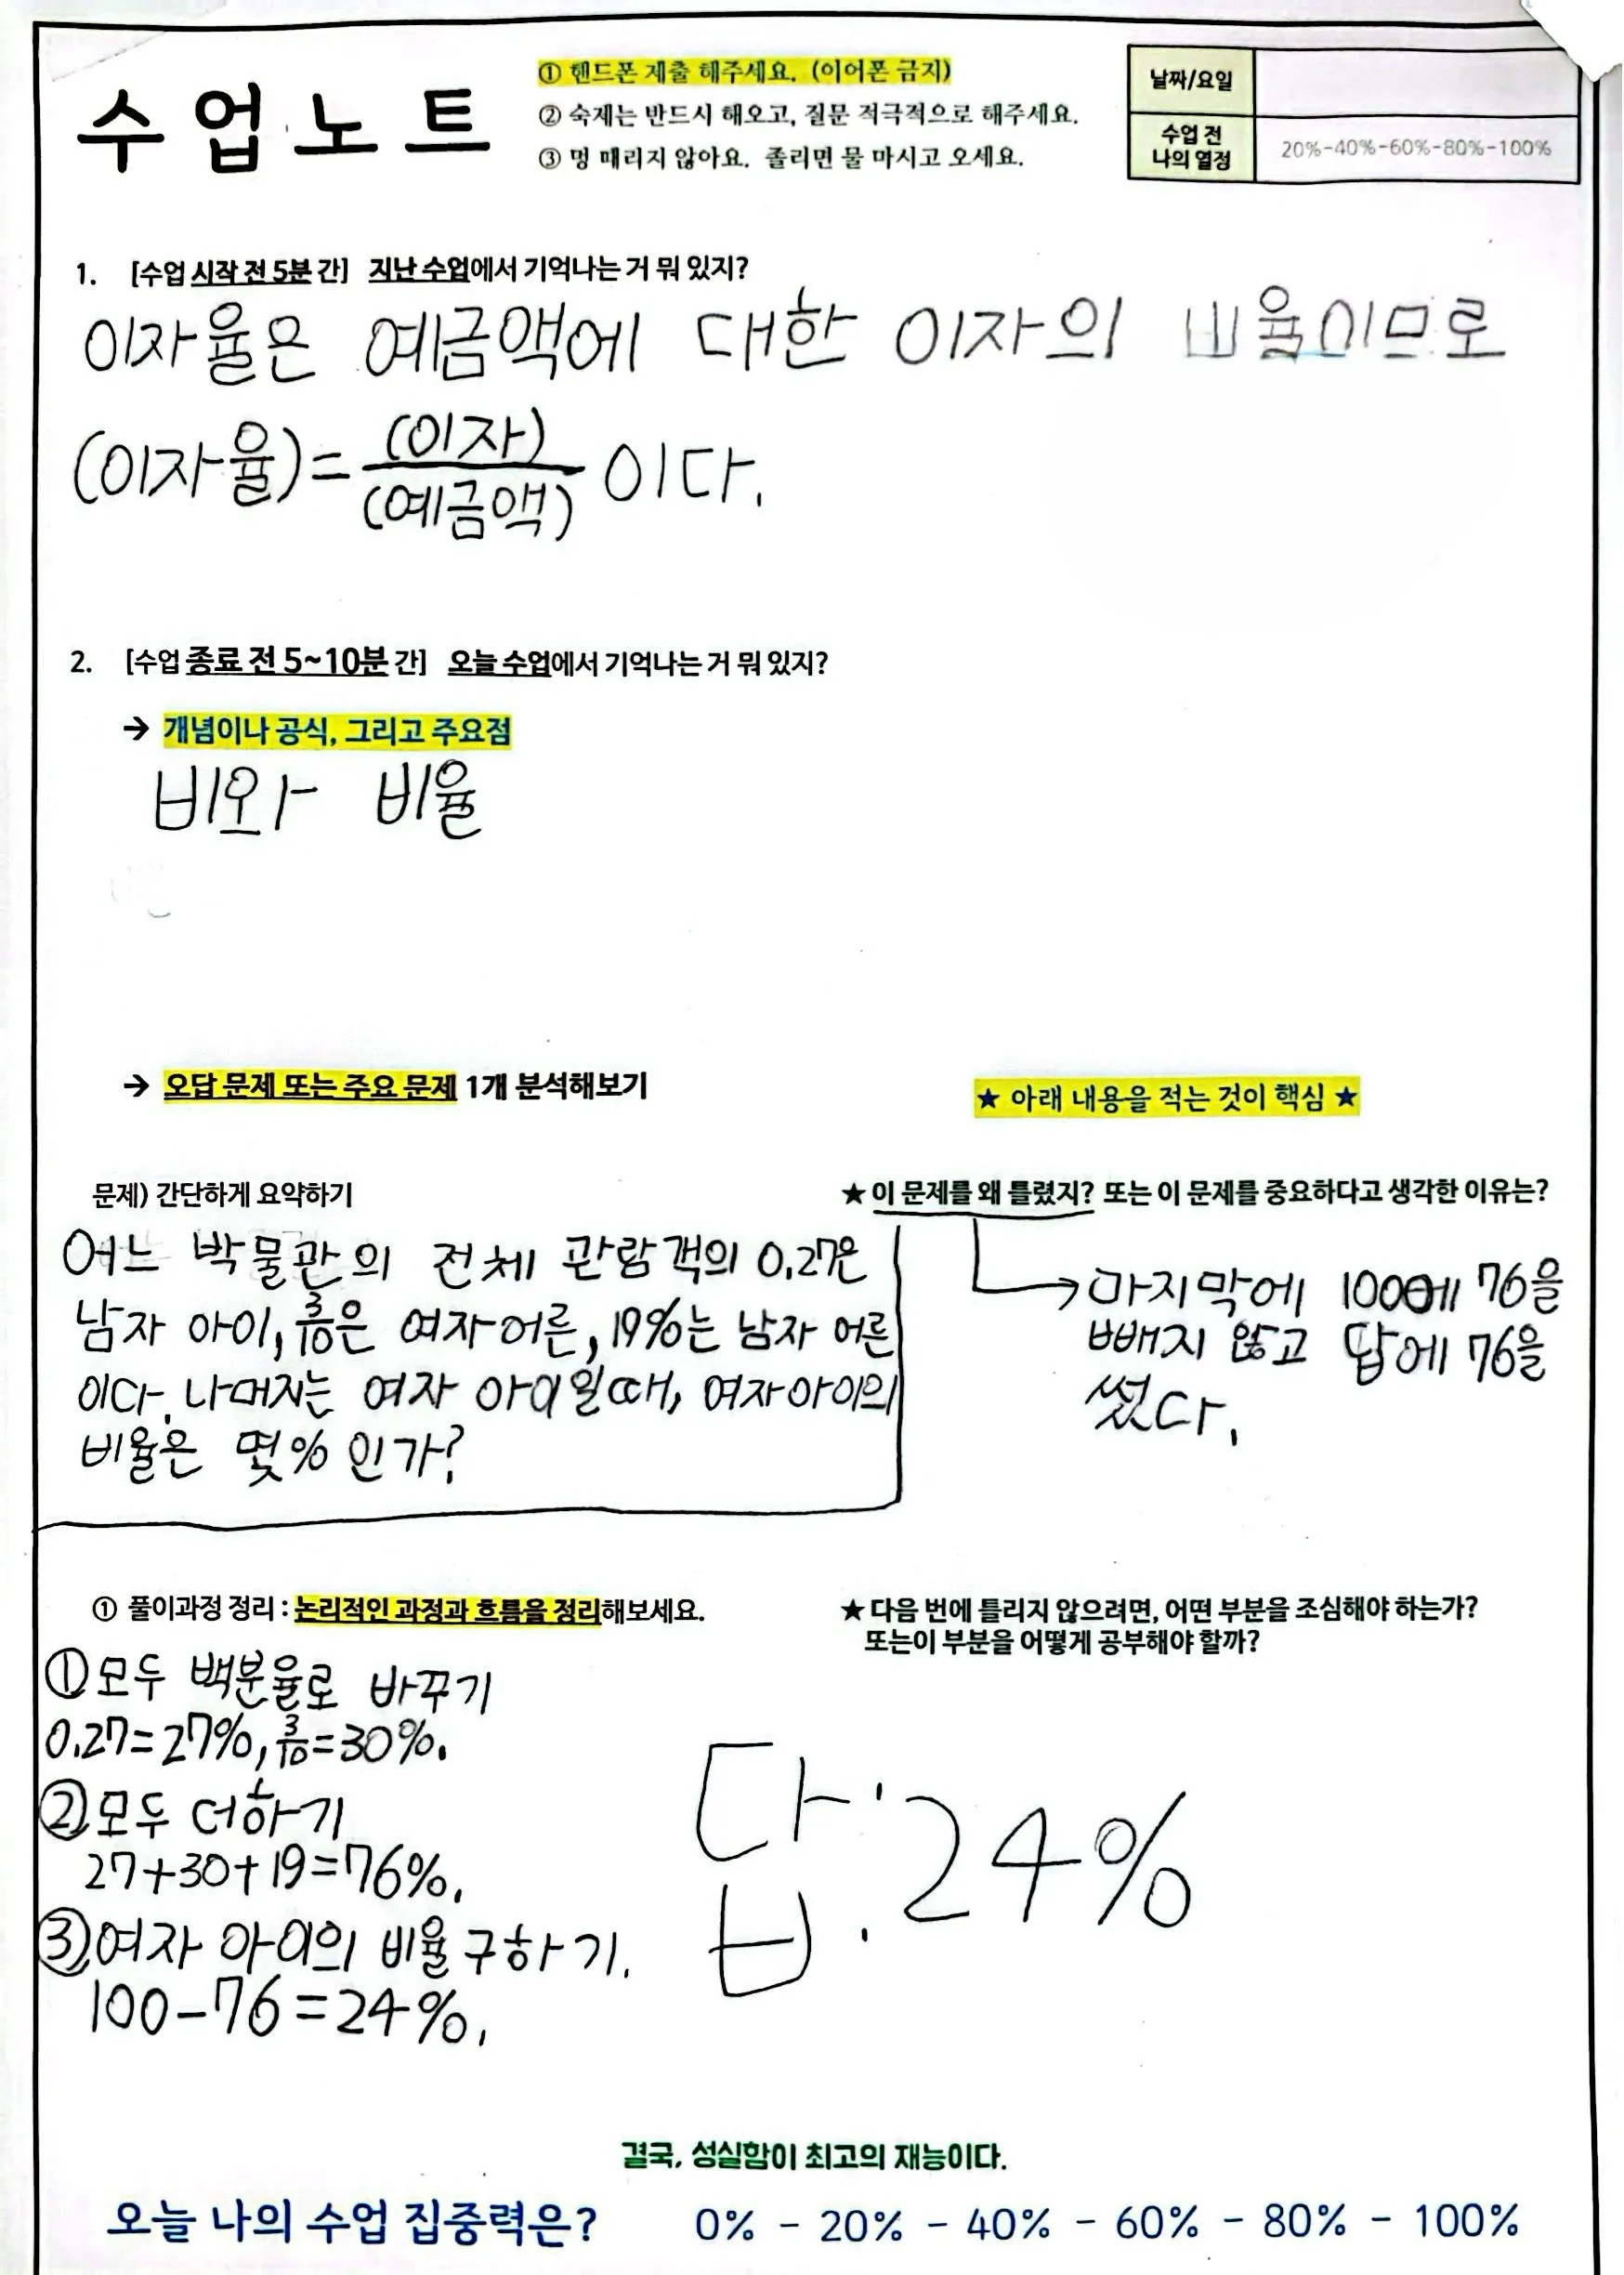 수업노트
① 핸드폰 제출 해주세요. (이어폰 금지)
② 숙제는 반드시 해오고, 질문 적극적으로 해주세요.
③ 멍 때리지 않아요. 졸리면 물 마시고 오세요.
날짜/요일
수업 전
나의 열정
20%-40%-60%-80%-100%
1. [수업 시작 전 5분 간] 지난 수업에서 기억나는 거 뭐 있지?
이자율은 예금액에 대한 이자의 비율이므로
(이자율)=(이자)/(예금액) 이다.
2. [수업 종료 전 5~10분 간] 오늘 수업에서 기억나는 거 뭐 있지?
→ 개념이나 공식, 그리고 주요점
비와 비율
→ 오답 문제 또는 주요 문제 1개 분석해보기
★ 아래 내용을 적는 것이 핵심 ★
문제) 간단하게 요약하기
어느 박물관의 전체 관람객의 0.27은
남자 아이, 3/10은 여자어른, 19%는 남자 어른
이다. 나머지는 여자 아이일때, 여자아이의
비율은 몇% 인가?
★ 이 문제를 왜 틀렸지? 또는 이 문제를 중요하다고 생각한 이유는?
마지막에 100에 76을
빼지 않고 답에 76을
썼다.
① 풀이과정 정리 : 논리적인 과정과 흐름을 정리해보세요.
①모두 백분율로 바꾸기
0.27=27%, 3/10=30%.
②모두 더하기
27+30+19=76%.
③여자 아이의 비율 구하기.
100-76=24%.
★ 다음 번에 틀리지 않으려면, 어떤 부분을 조심해야 하는가?
또는이 부분을 어떻게 공부해야 할까?
답:24%
결국, 성실함이 최고의 재능이다.
오늘 나의 수업 집중력은? 0% - 20% - 40% - 60% - 80% - 100%